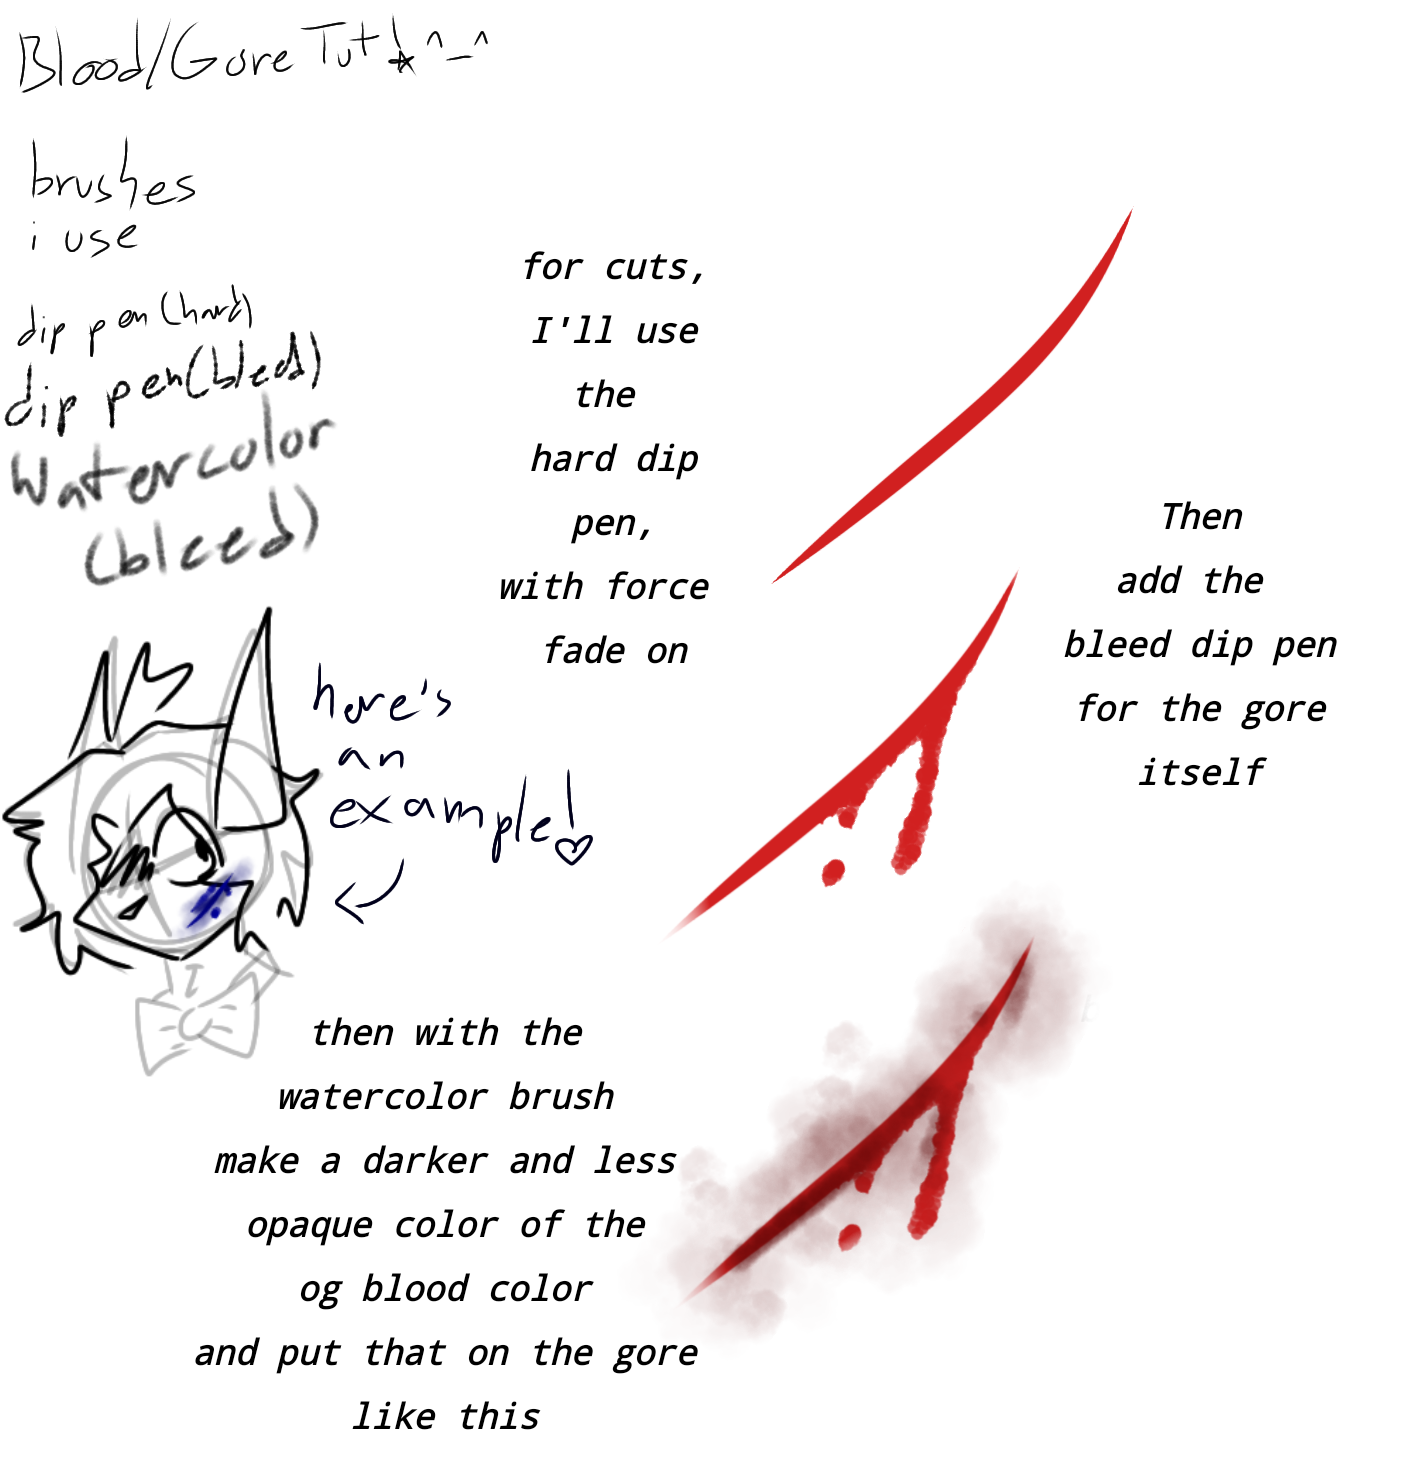 Blood/Gore Tut! ^_^
brushes
i use
dip pen (hard)
dip pen (bleed)
Watercolor
(bleed)
for cuts,
I'll use
the
hard dip
pen,
with force
fade on
Then
add the
bleed dip pen
for the gore
itself
here's
an
example!
then with the
watercolor brush
make a darker and less
opaque color of the
og blood color
and put that on the gore
like this